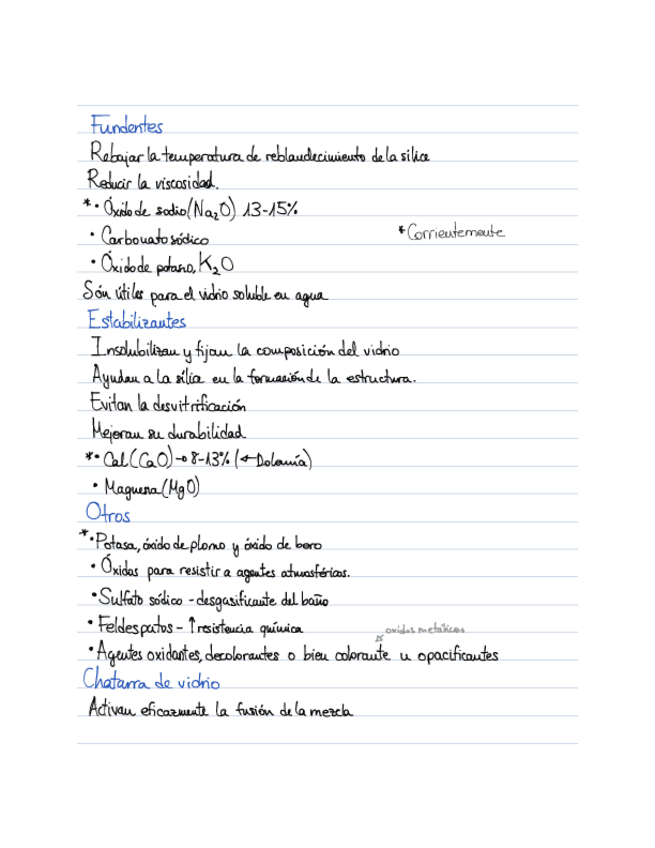 Fundentes
Rebajar la temperatura de reblandecimiento de la sílice
Reducir la viscosidad.
* • Óxido de sodio (Na₂O) 13-15%
• Carbonato sódico
* Corrientemente
• Óxido de potasio, K₂O
Són útiles para el vidrio soluble en agua
Estabilizantes
Insolubilizan y fijan la composición del vidrio
Ayudan a la sílice en la formación de la estructura.
Evitan la desvitrificación
Mejoran su durabilidad
* • Cal (CaO) → 8-13% (← Dolomía)
• Magnesia (MgO)
Otros
* • Potasa, óxido de plomo y óxido de boro
• Óxidos para resistir a agentes atmosféricos.
• Sulfato sódico - desgasificante del baño
• Feldespatos - ↑ resistencia química
oxidos metálicos
• Agentes oxidantes, decolorantes o bien colorante u opacificantes
Chatarra de vidrio
Activan eficazmente la fusión de la mezcla